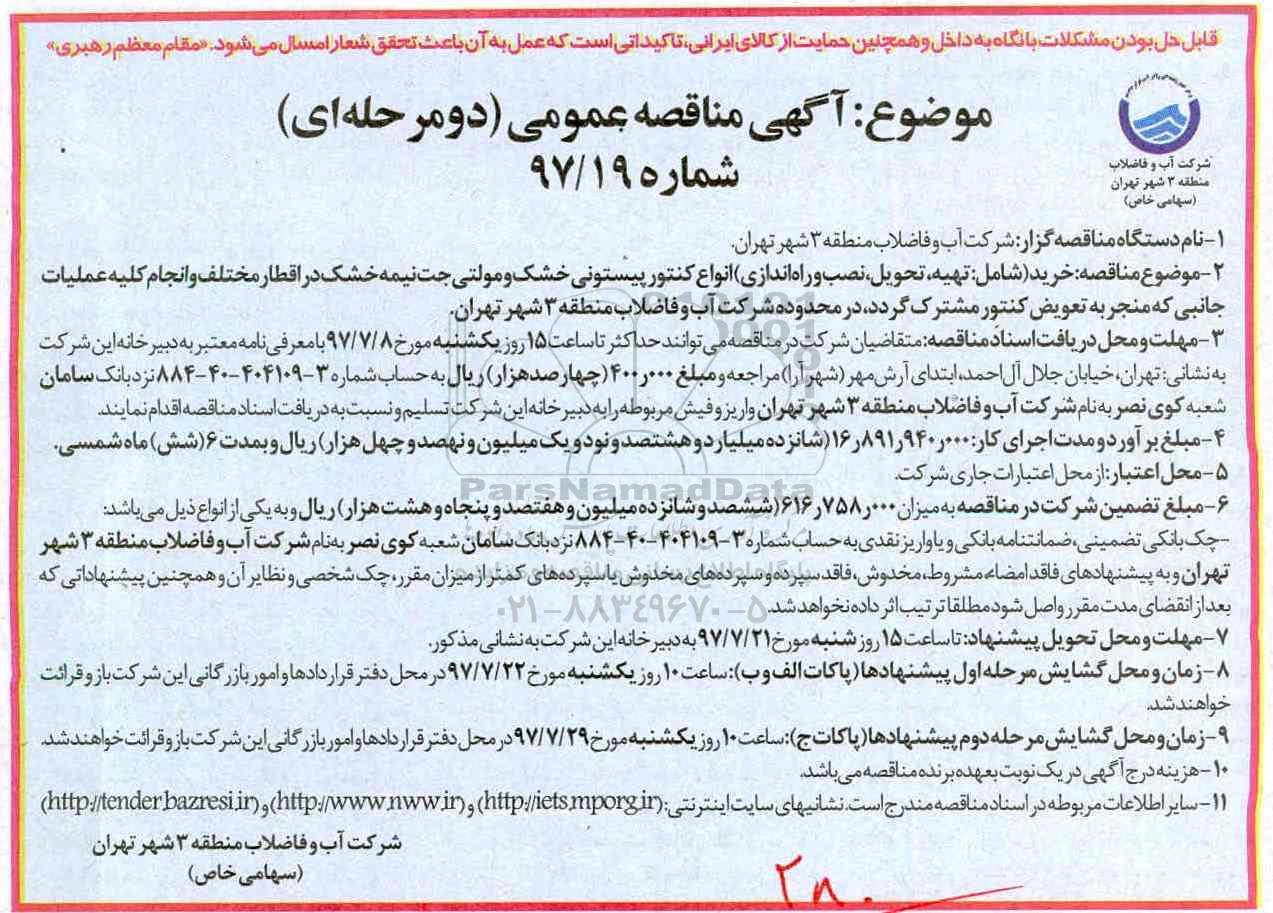 قابل حل بودن مشکلات با نگاه به داخل و همچنین حمایت از کالای ایرانی، تاکیداتی است که عمل به آن باعث تحقق شعار امسال می شود. «مقام معظم رهبری»
موضوع: آگهی مناقصه عمومی (دو مرحله‌ای)
شماره ۹۷/۱۹
شرکت آب و فاضلاب
منطقه ۳ شهر تهران
(سهامی خاص)
۱-نام دستگاه مناقصه گزار: شرکت آب و فاضلاب منطقه ۳ شهر تهران.
۲-موضوع مناقصه: خرید (شامل: تهیه، تحویل، نصب و راه اندازی) انواع کنتور پیستونی خشک و مولتی جت نیمه خشک در اقطار مختلف و انجام کلیه عملیات
جانبی که منجر به تعویض کنتور مشترک گردد، در محدوده شرکت آب و فاضلاب منطقه ۳ شهر تهران.
۳-مهلت و محل دریافت اسناد مناقصه: متقاضیان شرکت در مناقصه می توانند حداکثر تا ساعت ۱۵ روز یکشنبه مورخ ۹۷/۷/۸ با معرفی نامه معتبر به دبیرخانه این شرکت
به نشانی: تهران، خیابان جلال آل احمد، ابتدای آرش مهر (شهرآرا) مراجعه و مبلغ ۴۰۰٫۰۰۰ (چهارصد هزار) ریال به حساب شماره ۳-۴۰۴۱۰۹-۴۰-۸۸۴ نزد بانک سامان
شعبه کوی نصر به نام شرکت آب و فاضلاب منطقه ۳ شهر تهران واریز و فیش مربوطه را به دبیرخانه این شرکت تسلیم و نسبت به دریافت اسناد مناقصه اقدام نمایند.
۴-مبلغ برآورد و مدت اجرای کار: ۱۶٫۸۹۱٫۹۴۰٫۰۰۰ (شانزده میلیارد و هشتصد و نود و یک میلیون و نهصد و چهل هزار) ریال و بمدت ۶ (شش) ماه شمسی.
۵-محل اعتبار: از محل اعتبارات جاری شرکت.
۶-مبلغ تضمین شرکت در مناقصه به میزان ۶۱۶٫۷۵۸٫۰۰۰ (ششصد و شانزده میلیون و هفتصد و پنجاه و هشت هزار) ریال و به یکی از انواع ذیل می باشد:
-چک بانکی تضمینی، ضمانتنامه بانکی و یا واریز نقدی به حساب شماره ۳-۴۰۴۱۰۹-۴۰-۸۸۴ نزد بانک سامان شعبه کوی نصر به نام شرکت آب و فاضلاب منطقه ۳ شهر
تهران و به پیشنهادهای فاقد امضاء، مشروط، مخدوش، فاقد سپرده و سپرده‌های مخدوش یا سپرده‌های کمتر از میزان مقرر، چک شخصی و نظایر آن و همچنین پیشنهاداتی که
بعد از انقضای مدت مقرر واصل شود مطلقا ترتیب اثر داده نخواهد شد.
۷-مهلت و محل تحویل پیشنهاد: تا ساعت ۱۵ روز شنبه مورخ ۹۷/۷/۲۱ به دبیرخانه این شرکت به نشانی مذکور.
۸-زمان و محل گشایش مرحله اول پیشنهادها (پاکات الف و ب): ساعت ۱۰ روز یکشنبه مورخ ۹۷/۷/۲۲ در محل دفتر قراردادها و امور بازرگانی این شرکت باز و قرائت
خواهند شد.
۹-زمان و محل گشایش مرحله دوم پیشنهادها (پاکات ج): ساعت ۱۰ روز یکشنبه مورخ ۹۷/۷/۲۹ در محل دفتر قراردادها و امور بازرگانی این شرکت باز و قرائت خواهند شد.
۱۰-هزینه درج آگهی در یک نوبت بعهده برنده مناقصه می باشد.
۱۱-سایر اطلاعات مربوطه در اسناد مناقصه مندرج است. نشانیهای سایت اینترنتی: (http://iets.mporg.ir) و (http://www.nww.ir) و (http://tender.bazresi.ir)
شرکت آب و فاضلاب منطقه ۳ شهر تهران
(سهامی خاص)
۲۸۰
ParsNamadData
۰۲۱-۸۸۳۴۹۶۷۰-۵